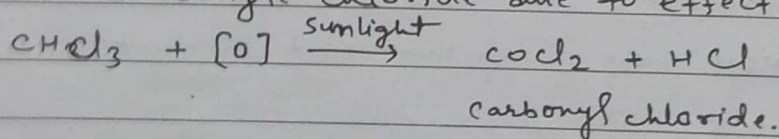 to effect
CHCl3 + [O] sunlight → COCl2 + HCl
Carbonyl chloride.